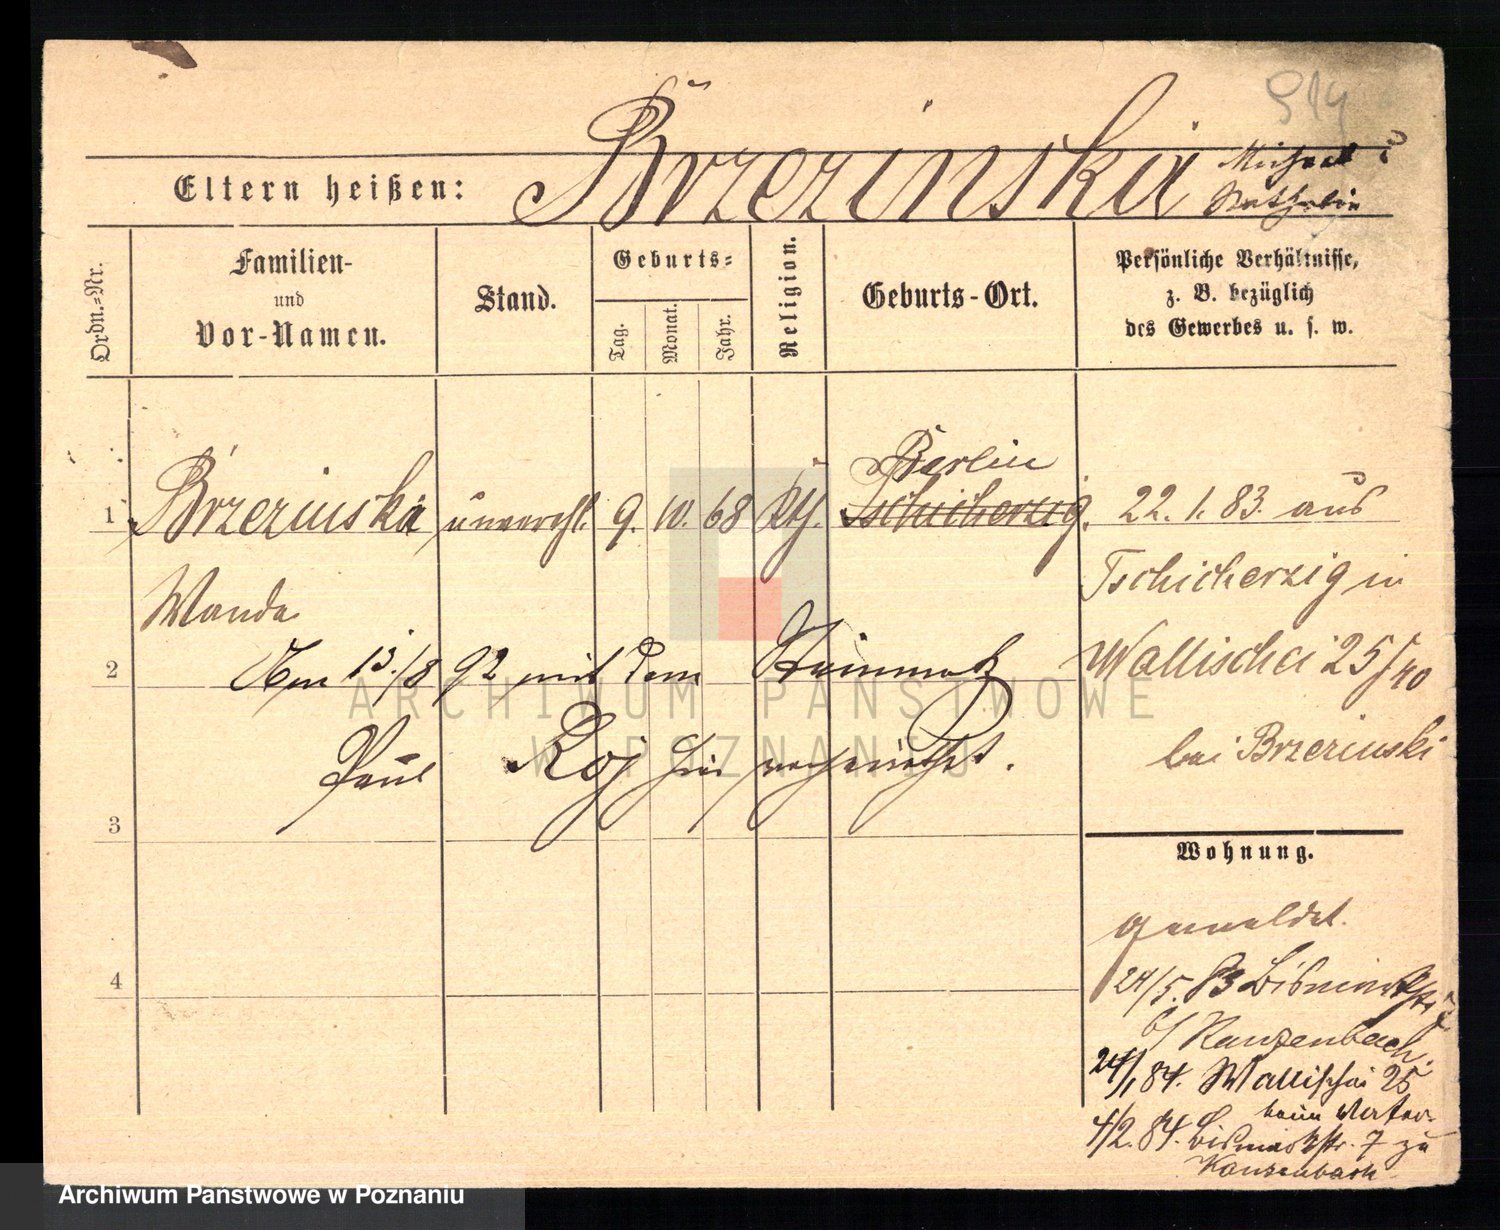 Brzezinska
Michael
Eltern heißen:
Ordn.-Nr.
Familien-
und
Vor-Namen.
Stand.
Geburts-
Tag.
Monat.
Jahr.
Religion.
Geburts-Ort.
Persönliche Verhältnisse,
z. B. bezüglich
des Gewerbes u. s. w.
Berlin
1 Brzezinska unverehl. 9. 10. 68 Kth. Tschicherzig. 22. 1. 83. aus
Wanda
Tschicherzig in
2 Am 13./8 92 mit dem
Wallischei 25/40
Paul Roj hier verheirathet.
bei Brzezinski
3
Wohnung.
gemeldet.
4
24/5. 83 Bismarckstr. 7
b/ Kanzenbach.
24/1 84. Wallischei 25
beim Vater.
4/2. 84. Bismarckstr. 7 zu
Kanzenbach
ARCHIWUM PAŃSTWOWE
W POZNANIU
Archiwum Państwowe w Poznaniu